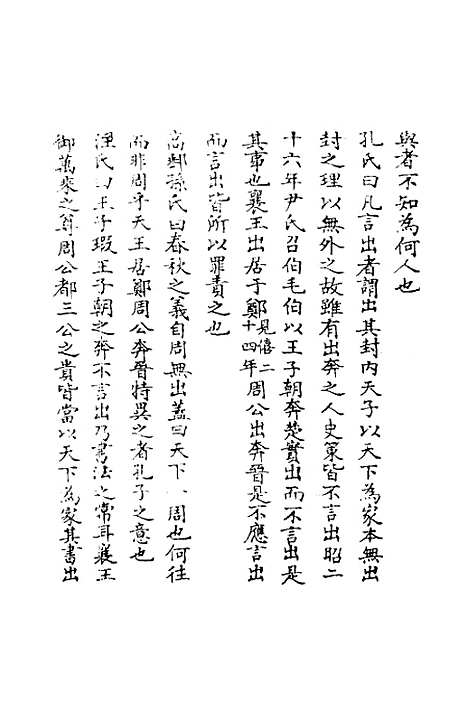 與者不知為何人也
孔氏曰凡言出者謂出其封內天子以天下為家本無出
封之理以無外之故雖有出奔之人史策皆不言出昭二
十六年尹氏召伯毛伯以王子朝奔楚實出而不言出是
其事也襄王出居于鄭見僖二十四年周公出奔晉是不應言出
而言出皆所以罪責之也
高郵孫氏曰春秋之義自周無出蓋曰天下一周也何往
而非周乎天王居鄭周公奔晉特異之者孔子之意也
汪氏曰王子瑕王子朝之奔不言出乃書法之常耳襄王
御萬乘之尊周公都三公之貴皆當以天下為家其書出